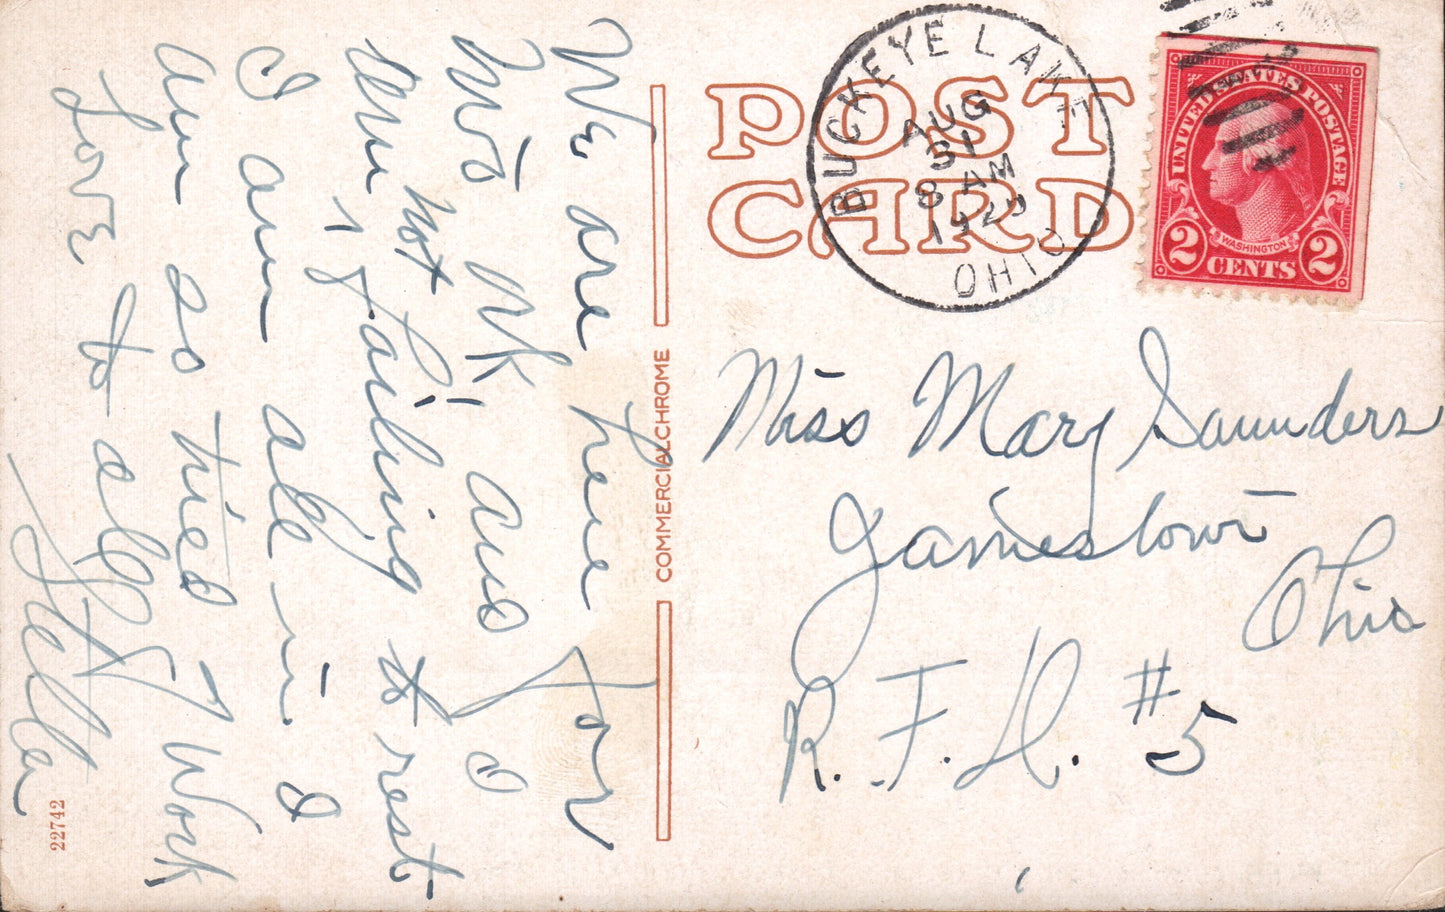 We are here for
two wk. and I
am not failing to rest
I am all in I
am so tired of work
Love to all
Stella
22742
COMMERCIALCHROME
POST
CARD
BUCKEYE LAKE
AUG
31
8 AM
OHIO
UNITED STATES POSTAGE
WASHINGTON
2 CENTS 2
Miss Mary Saunders
Jamestown
Ohio
R.F.D. #5